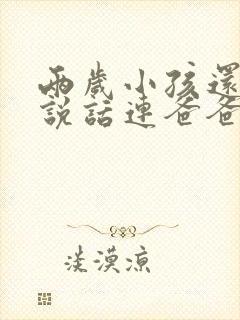 兩歲小孩還
說話連爸爸
淡漠涼